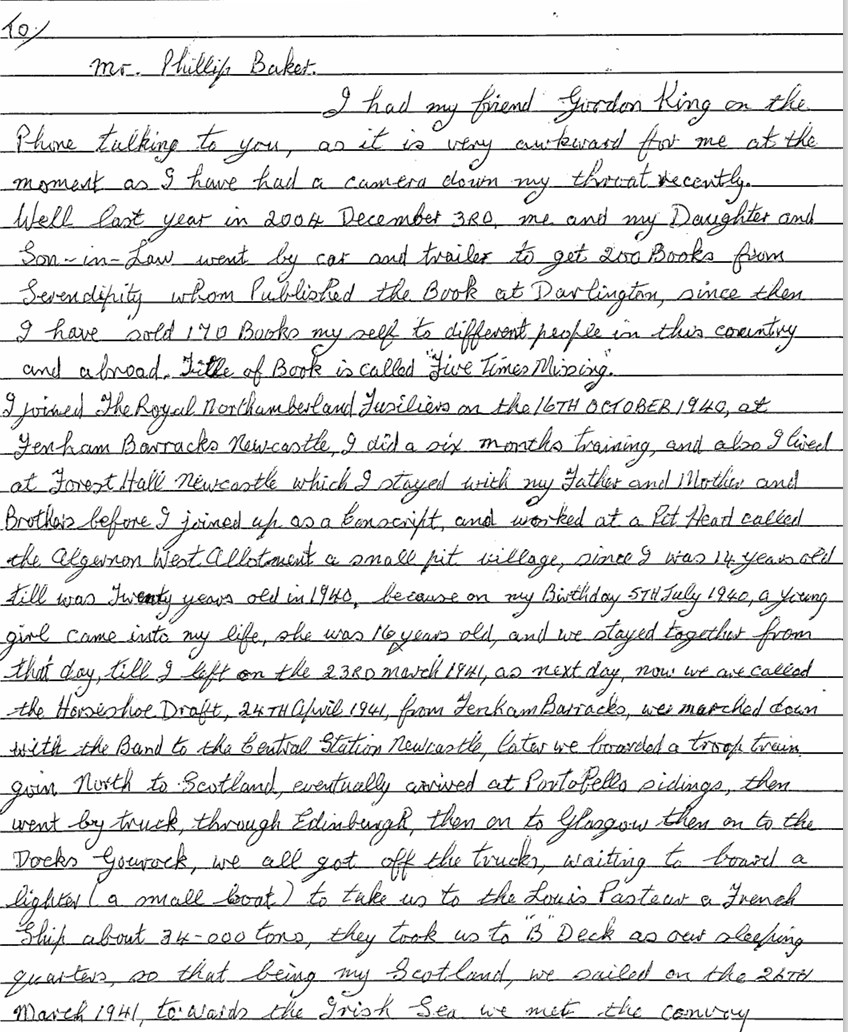 To/
Mr. Phillip Baker.
I had my friend Gordon King on the
Phone talking to you, as it is very awkward for me at the
moment as I have had a camera down my throat recently.
Well last year in 2004 December 3RD, me and my Daughter and
Son-in-Law went by car and trailer to get 200 Books from
Serendipity whom Published the Book at Darlington, since then
I have sold 170 Books my self to different people in this country
and abroad. Title of Book is called "Five Times Missing".
I joined The Royal Northamberland Fusiliers on the 16TH OCTOBER 1940, at
Fenham Barracks Newcastle, I did a six months training, and also I lived
at Forest Hall Newcastle which I stayed with my Father and Mother and
Brothers before I joined up as a Conscript, and worked at a Pit Head called
the Algernon West Allotment a small pit village, since I was 14 years old
till was Twenty years old in 1940, because on my Birthday 5TH July 1940, a young
girl came into my life, she was 16 years old, and we stayed together from
that day, till I left on the 23RD March 1941, as next day, now we are called
the Horseshoe Draft, 24TH April 1941, from Fenham Barracks, we marched down
with the Band to the Central Station Newcastle, later we boarded a troop train
goin North to Scotland, eventually arrived at Portobello sidings, then
went by truck, through Edinburgh, then on to Glasgow then on to the
Docks Gourock, we all got off the trucks, waiting to board a
lighter (a small boat) to take us to the Louis Pasteur a French
Ship about 34-000 tons, they took us to "B" Deck as our sleeping
quarters, so that being my Scotland, we sailed on the 26TH
March 1941, towards the Irish Sea we met the convoy